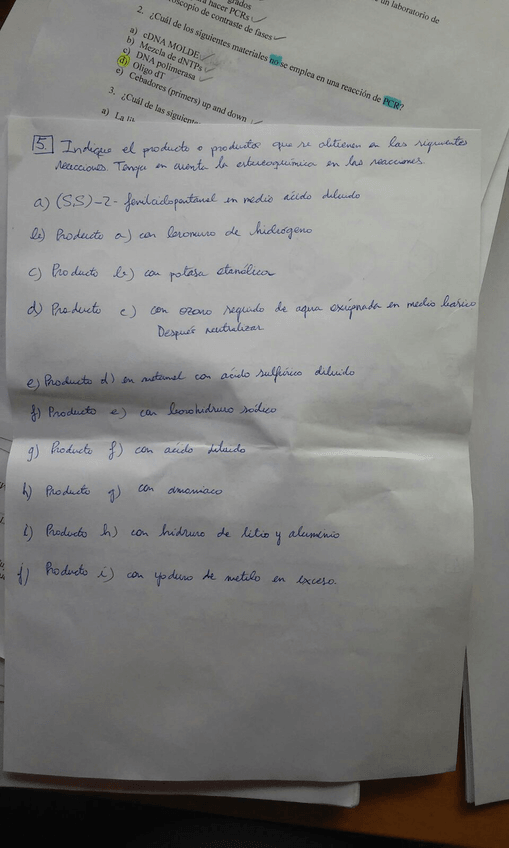 grados
a hacer PCRs
oscopio de contraste de fases
un laboratorio de
2. ¿Cuál de los siguientes materiales no se emplea en una reacción de PCR?
a) cDNA MOLDE
b) Mezcla de dNTPs
c) DNA polimerasa
d) Oligo dT
e) Cebadores (primers) up and down
3. ¿Cuál de las siguiente
a) La
5. Indique el producto o productos que se obtienen en las siguientes
reacciones. Tenga en cuenta la estereoquímica en las reacciones.
a) (S,S)-2-fenilciclopentanol en medio ácido diluido
b) Producto a) con bromuro de hidrógeno
c) Producto b) con potasa etanólica
d) Producto c) con ozono seguido de agua oxigenada en medio básico
Después neutralizar
e) Producto d) en metanol con ácido sulfúrico diluido
f) Producto e) con borohidruro sódico
g) Producto f) con ácido diluido
h) Producto g) con amoniaco
i) Producto h) con hidruro de litio y aluminio
j) Producto i) con yoduro de metilo en exceso.